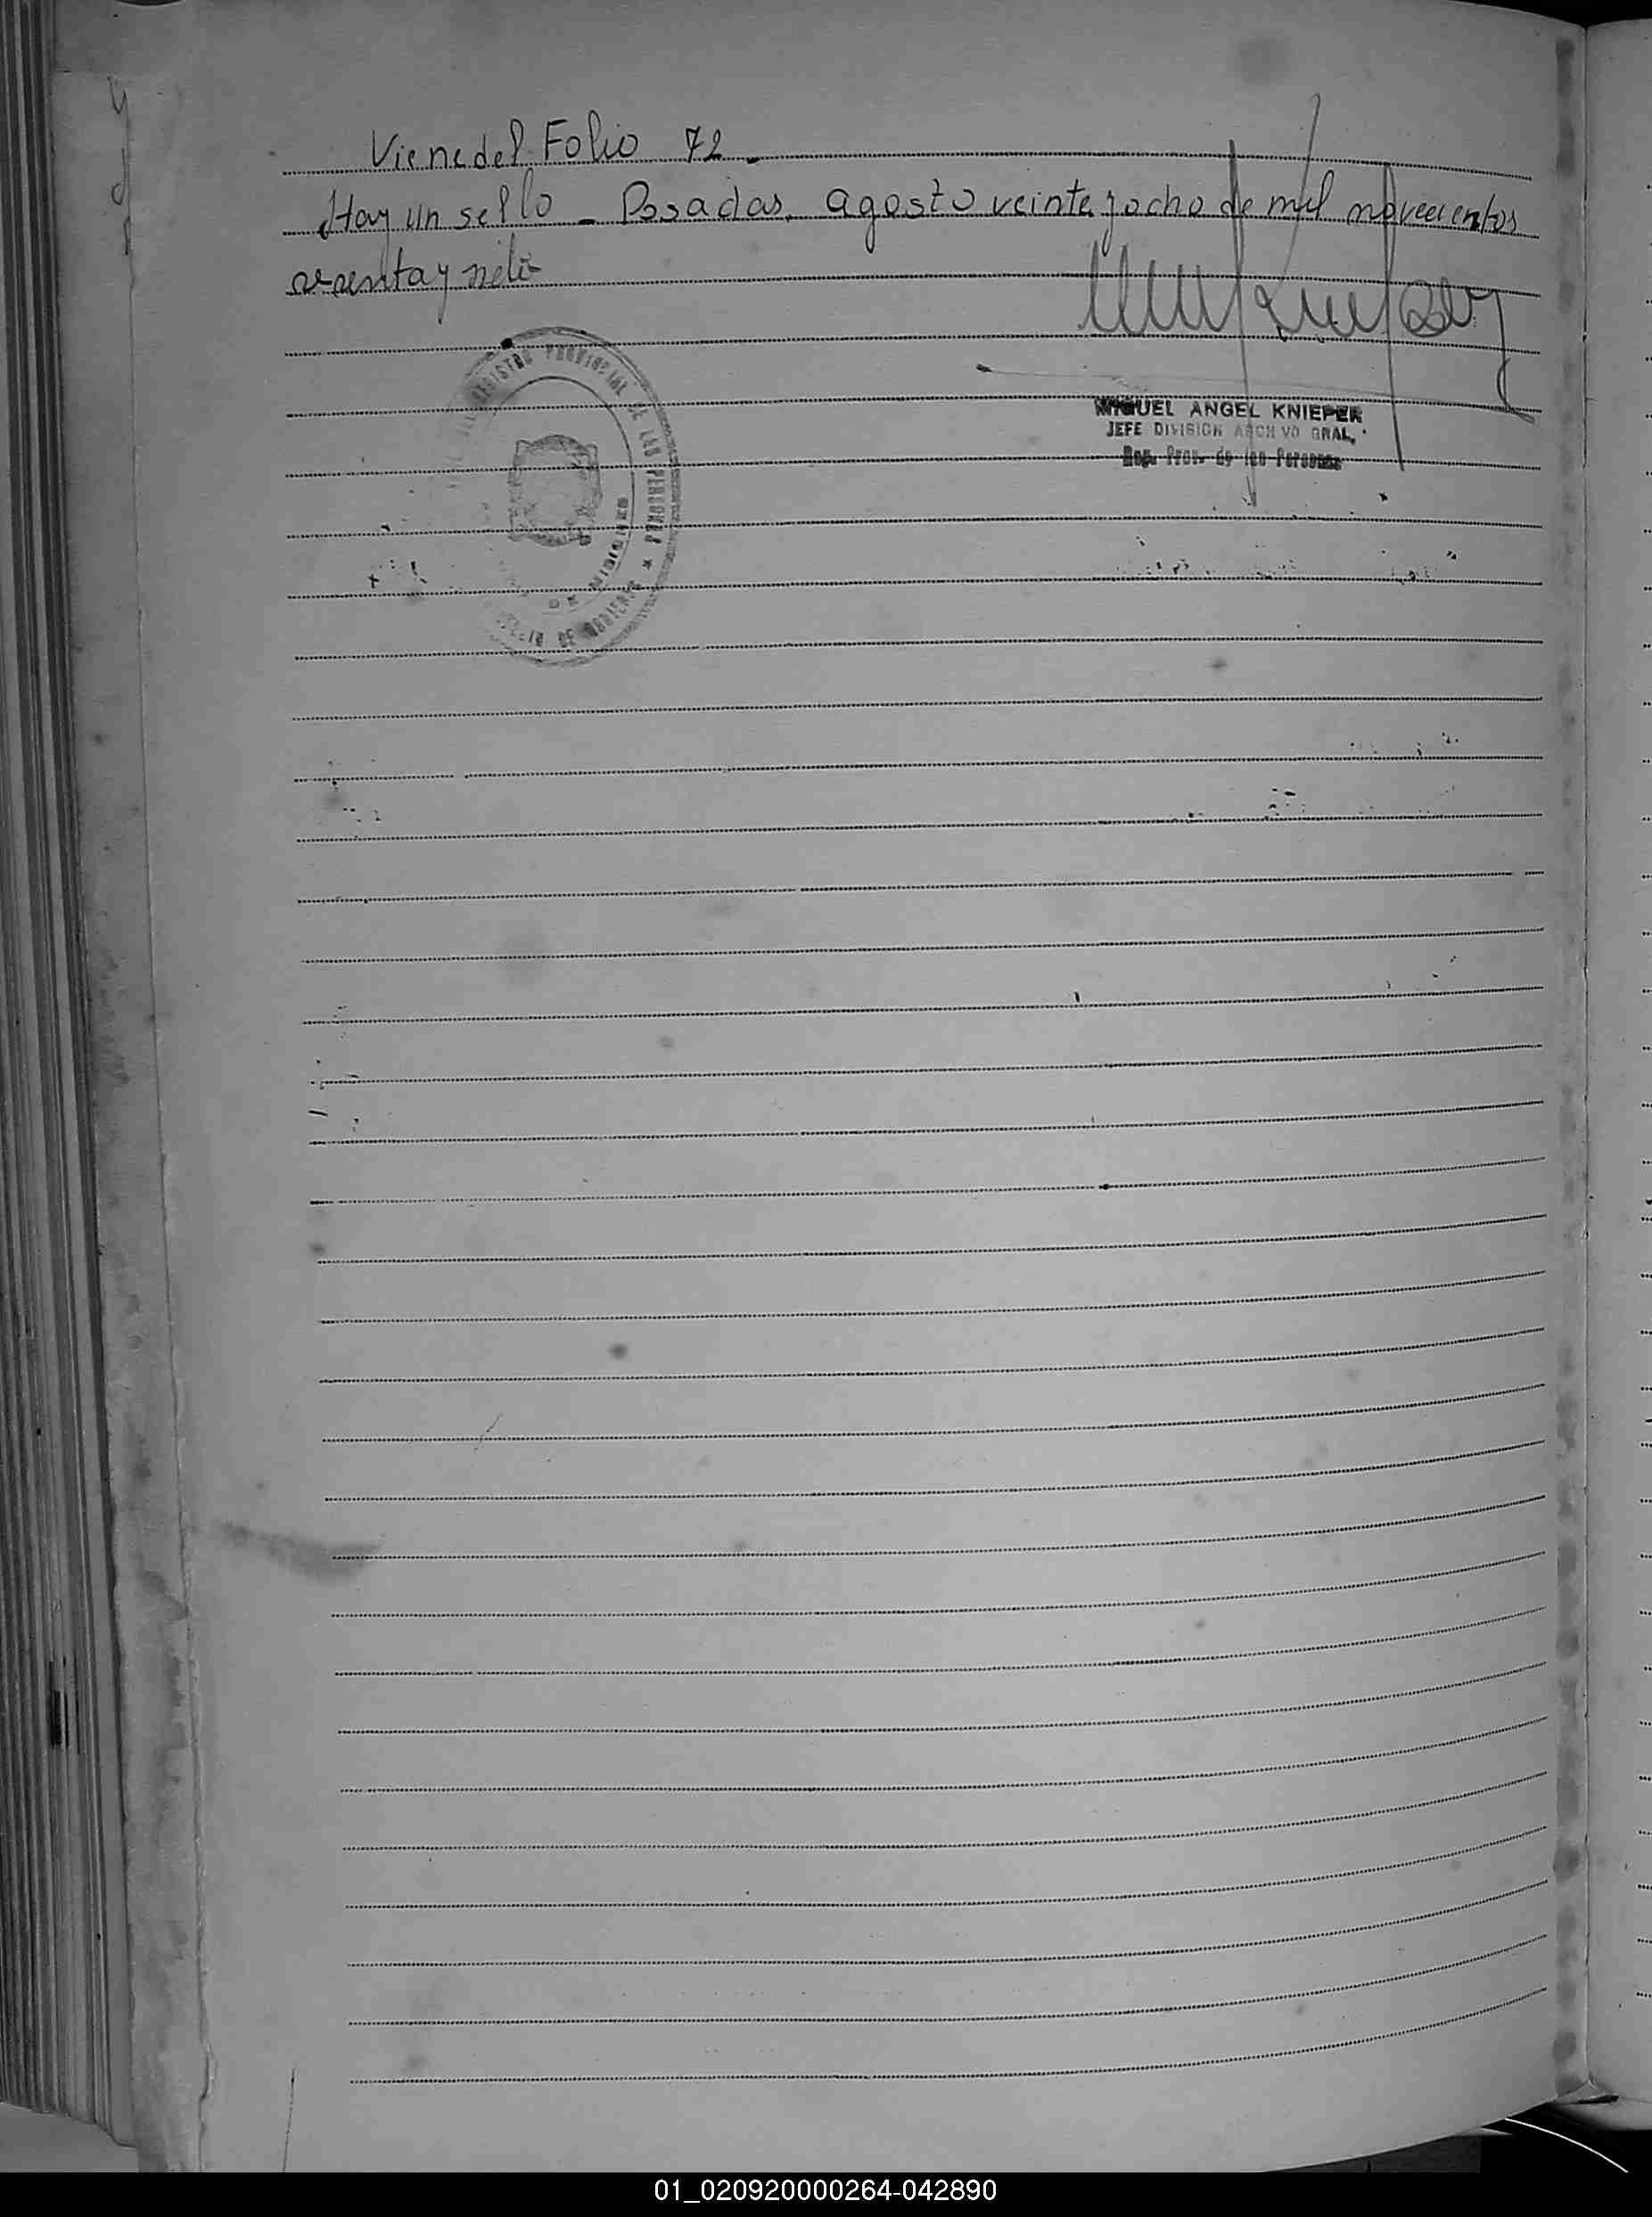 Viene del Folio 72 -
Hay un sello - Posadas, agosto veinte y ocho de mil novecientos
sesenta y siete
REGISTRO PROVINCIAL DE LAS PERSONAS *
MIGUEL ANGEL KNIEPER
JEFE DIVISION ARCHIVO GRAL.
Reg. Prov. de las Personas
01_020920000264-042890